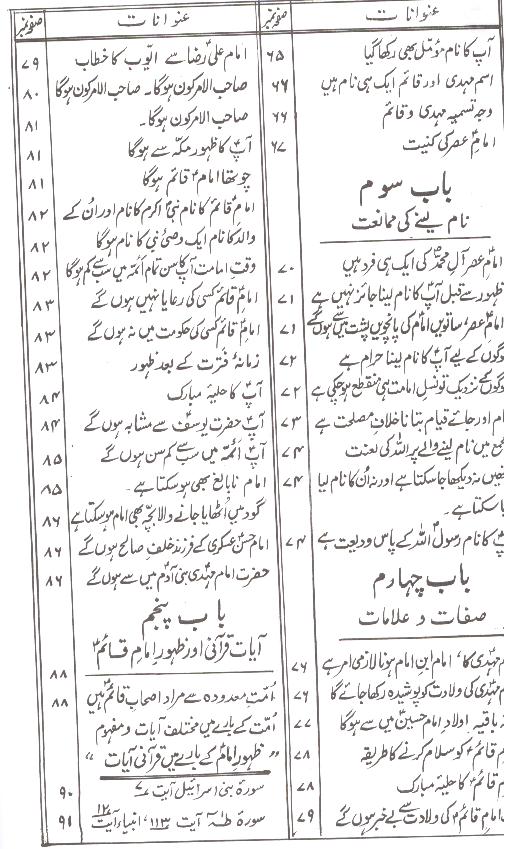 عنوانات صفحہ نمبر
آپ کا نام مؤمل بھی رکھا گیا ۶۵
اسم مہدی اور قائم ایک ہی نام ہیں ۶۶
وجہ تسمیہ مہدی و قائم ۶۶
امامِ عصر کی کنیت ۶۷
باب سوم
نام لینے کی ممانعت
امام عصر آلِ محمدؐ کی ایک ہی فرد ہیں ۷۰
ظہور سے قبل آپؑ کا نام لینا جائز نہیں ہے ۷۱
امام عصر، ساتویں امام کی پانچویں پشت میں سے ہوں گے ۷۱
لوگوں کے لیے آپؑ کا نام لینا حرام ہے ۷۲
لوگوں کے نزدیک تو نسلِ امامت ہی منقطع ہو چکی ہے ۷۲
نام اور جائے قیام بتانا خلافِ مصلحت ہے ۷۳
مجمع میں نام لینے والے پر اللہ کی لعنت ۷۴
انہیں نہ دیکھا جا سکتا ہے اور نہ اُن کا نام لیا ۷۴
جا سکتا ہے۔
آپؑ کا نام رسولؐ اللہ کے پاس ودیعت ہے ۷۴
باب چہارم
صفات و علامات
امام مہدیؑ کا، امام ابن امام ہونا لازمی امر ہے ۷۶
امام مہدیؑ کی ولادت کو پوشیدہ رکھا جائے گا ۷۶
باقیہ اولادِ امام حسینؑ میں سے ہوگا ۷۷
امام قائمؑ کو سلام کرنے کا طریقہ ۷۸
امام قائمؑ کا حلیہ مبارک ۷۸
امام قائمؑ کی ولادت سے بے خبر ہوں گے ۷۹
عنوانات صفحہ نمبر
امام علی رضاؑ سے ایوب کا خطاب ۷۹
صاحب الامر کون ہوگا۔ صاحب الامر کون ہوگا ۸۰
صاحب الامر کون ہوگا۔ ۸۱
آپؑ کا ظہور مکہ سے ہوگا ۸۱
چوتھا امامؑ قائم ہوگا ۸۱
امامِ قائمؑ کا نام نبی اکرمؐ کا نام اور اُن کے ۸۲
والد کا نام ایک وصیِ نبی کا نام ہوگا ۸۲
وقتِ امامت آپؑ کا سن تمام آئمہؑ میں سب سے کم ہوگا ۸۲
امام قائمؑ کسی کی رعایا نہیں ہوں گے ۸۳
امام قائمؑ کسی کی حکومت میں نہ ہوں گے ۸۳
زمانۂ فترت کے بعد ظہور ۸۳
آپؑ کا حلیۂ مبارک ۸۴
آپؑ حضرت یوسفؑ سے مشابہ ہوں گے ۸۴
آپؑ آئمہؑ میں سب سے کم سن ہوں گے ۸۵
امام نابالغ بھی ہو سکتا ہے۔ ۸۵
گود میں اٹھایا جانے والا بچہ بھی امام ہو سکتا ہے ۸۶
امام حسن عسکری کے فرزند خلفِ صالح ہوں گے ۸۶
حضرت امام مہدی بنی آدم میں سے ہوں گے ۸۶
باب پنجم
آیاتِ قرآنی اور ظہورِ امامِ قائمؑ
۸۸
اُمتِ معدودہ سے مراد اصحابِ قائمؑ ہیں ۸۸
اُمّت کے بارے میں مختلف آیات و مفہوم
"ظہورِ امامؑ کے بارے میں قرآنی آیات"
سورۂ بنی اسرائیل آیت ۷ ۹۰
سورۂ طٰہٰ آیت ۱۱۳، انبیاء آیت ۱۲ ۹۱